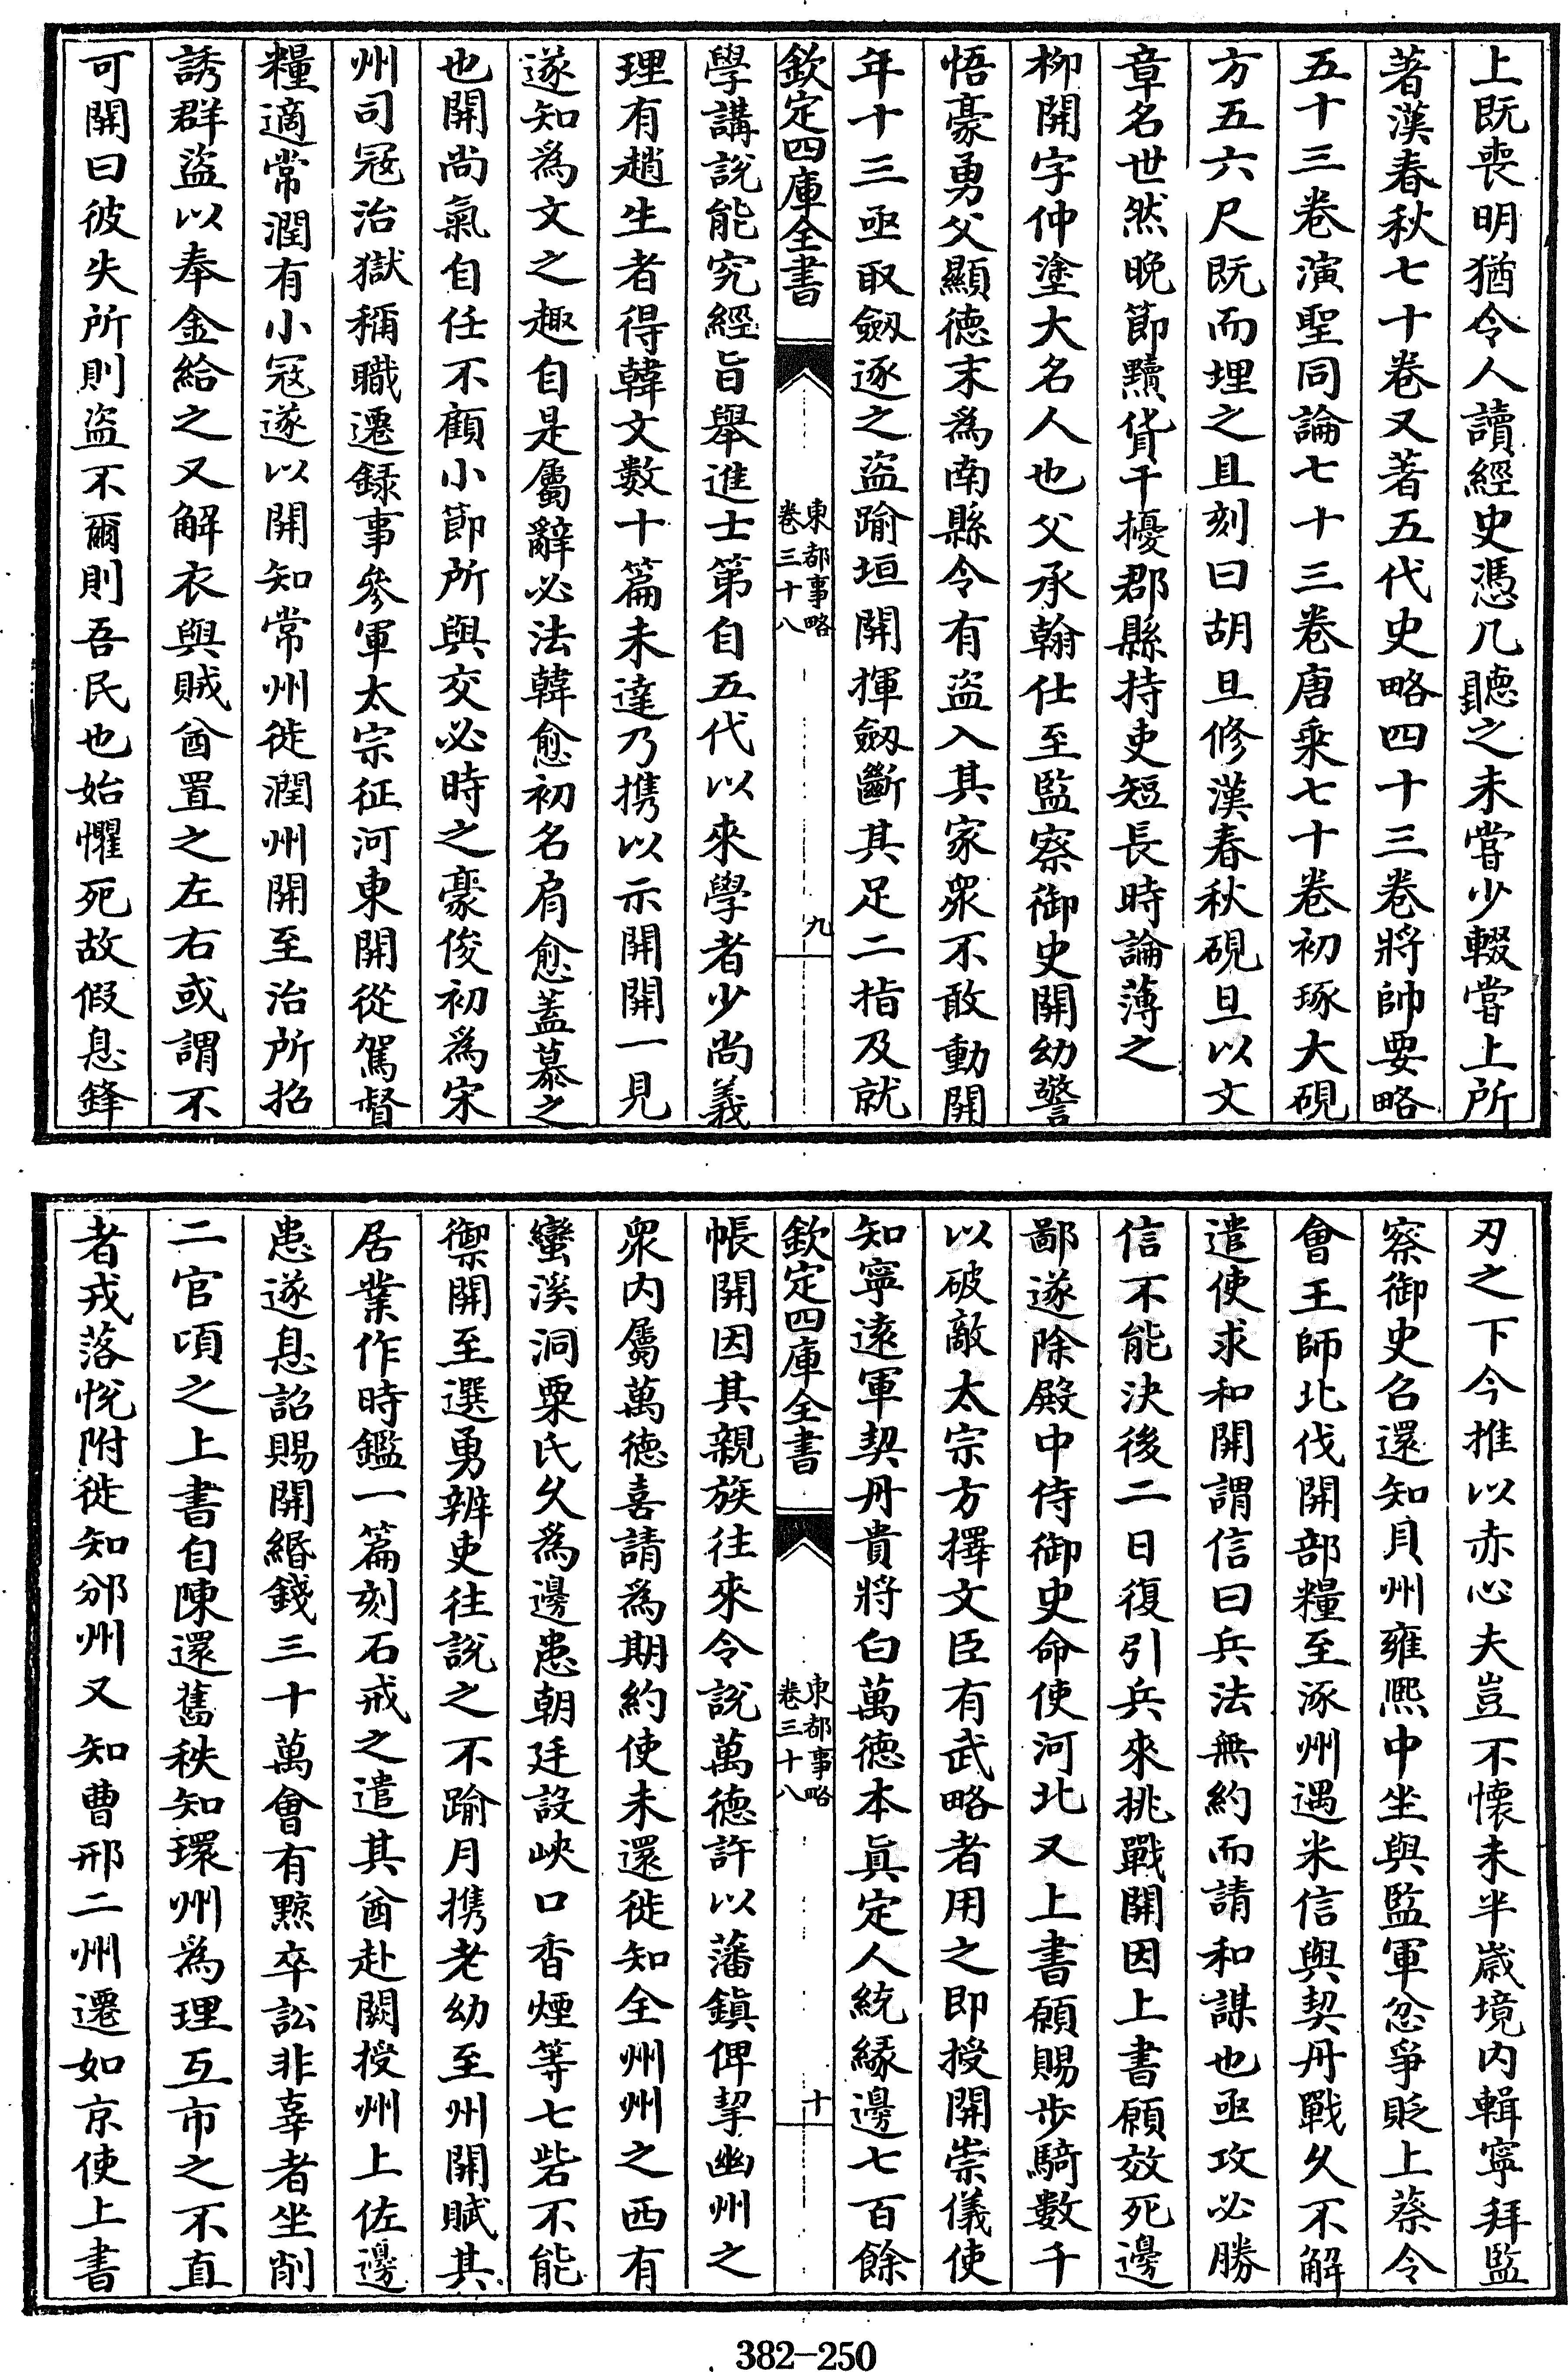 上既喪明猶令人讀經史憑几聽之未嘗少輟嘗上所
著漢春秋七十卷又著五代史略四十三卷將帥要略
五十三卷演聖同論七十三卷唐乘七十卷初琢大硯
方五六尺既而埋之且刻曰胡旦修漢春秋硯旦以文
章名世然晚節黷貨干擾郡縣持吏短長時論薄之
栁開字仲塗大名人也父承翰仕至監察御史開幼警
悟豪勇父顯德末為南縣令有盜入其家衆不敢動開
年十三亟取劔逐之盜踰垣開揮劔斷其足二指及就
欽定四庫全書
東都事略
卷三十八
九
學講說能究經旨舉進士第自五代以來學者少尚義
理有趙生者得韓文數十篇未達乃攜以示開開一見
遂知為文之趣自是屬辭必法韓愈初名肩愈蓋慕之
也開尚氣自任不顧小節所與交必時之豪俊初為宋
州司寇治獄稱職遷録事參軍太宗征河東開從駕督
糧適常潤有小寇遂以開知常州徙潤州開至治所招
誘群盜以奉金給之又解衣與賊酋置之左右或謂不
可開曰彼失所則盜不爾則吾民也始懼死故假息鋒
刃之下今推以赤心夫豈不懐未半歲境内輯寧拜監
察御史召還知貝州雍熙中坐與監軍忿爭貶上蔡令
會王師北伐開部糧至涿州遇米信與契丹戰久不解
遣使求和開謂信曰兵法無約而請和謀也亟攻必勝
信不能決後二日復引兵來挑戰開因上書願效死邊
鄙遂除殿中侍御史命使河北又上書願賜步騎數千
以破敵太宗方擇文臣有武略者用之即授開崇儀使
知寧遠軍契丹貴將白萬德本真定人統緣邊七百餘
欽定四庫全書
東都事略
卷三十八
十
帳開因其親族往來令說萬德許以藩鎮俾挈幽州之
衆内屬萬德喜請為期約使未還徙知全州州之西有
蠻溪洞粟氏久為邊患朝廷設峽口香煙等七砦不能
禦開至選勇辨吏往說之不踰月攜老幼至州開賦其
居業作時鑑一篇刻石戒之遣其酋赴闕授州上佐邊
患遂息詔賜開緡錢三十萬會有黥卒訟非辜者坐削
二官頃之上書自陳還舊秩知環州為理互市之不直
者戎落悅附徙知邠州又知曹邢二州遷如京使上書
382-250